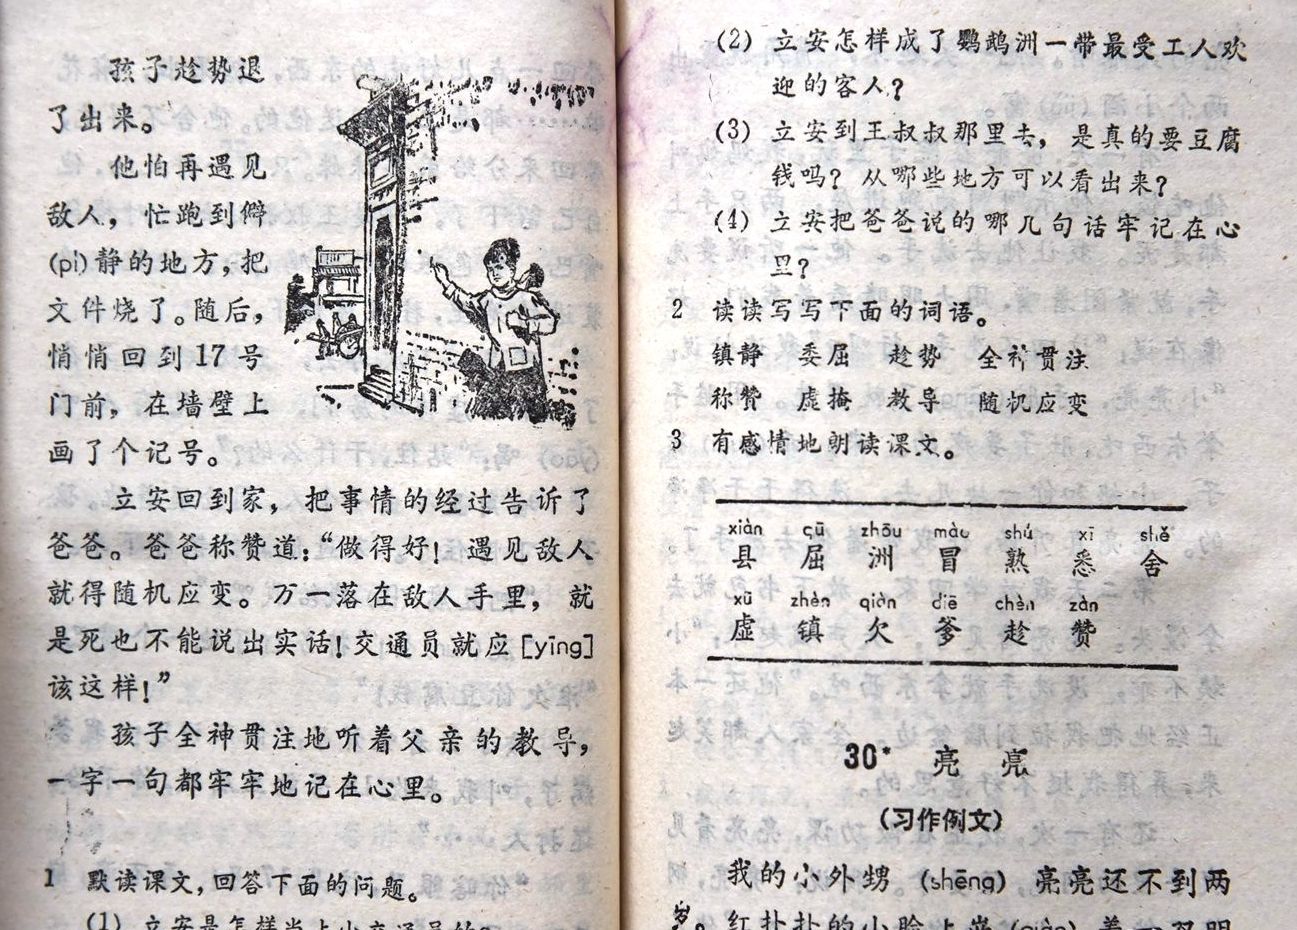 孩子趁势退
了出来。
他怕再遇见
敌人，忙跑到僻
(pì)静的地方，把
文件烧了。随后，
悄悄回到17号
门前，在墙壁上
画了个记号。
立安回到家，把事情的经过告诉了
爸爸。爸爸称赞道：“做得好！遇见敌人
就得随机应变。万一落在敌人手里，就
是死也不能说出实话！交通员就应[yīng]
该这样！”
孩子全神贯注地听着父亲的教导，
一字一句都牢牢地记在心里。
1 默读课文，回答下面的问题。
(1) 立安是怎样当上小交通员的？
(2) 立安怎样成了鹦鹉洲一带最受工人欢
迎的客人？
(3) 立安到王叔叔那里去，是真的要豆腐
钱吗？从哪些地方可以看出来？
(4) 立安把爸爸说的哪几句话牢记在心
里？
2 读读写写下面的词语。
镇静 委屈 趁势 全神贯注
称赞 虚掩 教导 随机应变
3 有感情地朗读课文。
xiàn qū zhōu mào shú xī shě
县 屈 洲 冒 熟 悉 舍
xū zhèn qiàn diē chèn zàn
虚 镇 欠 爹 趁 赞
30* 亮 亮
(习作例文)
我的小外甥 (shēng) 亮亮还不到两
岁。红扑扑的小脸上嵌 (qiàn) 着一双明